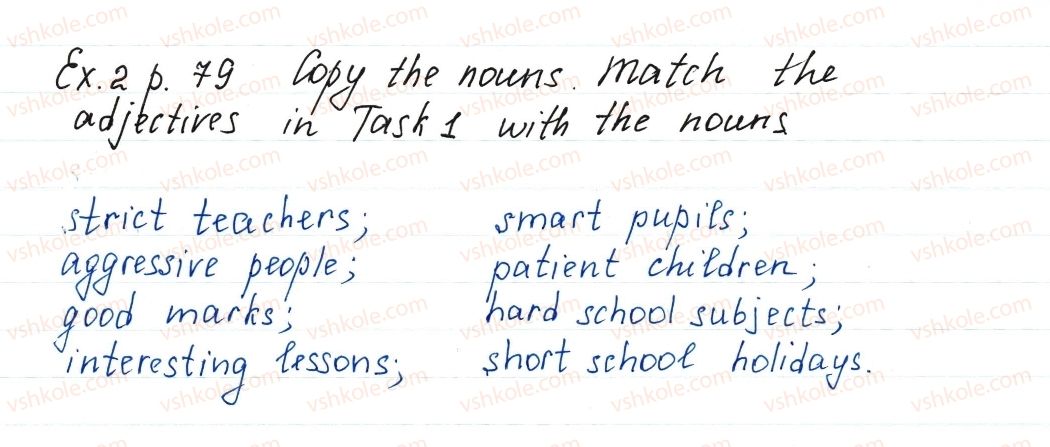 Ex. 2 p. 79 Copy the nouns. Match the
adjectives in Task 1 with the nouns
strict teachers;
aggressive people;
good marks;
interesting lessons;
smart pupils;
patient children;
hard school subjects;
short school holidays.